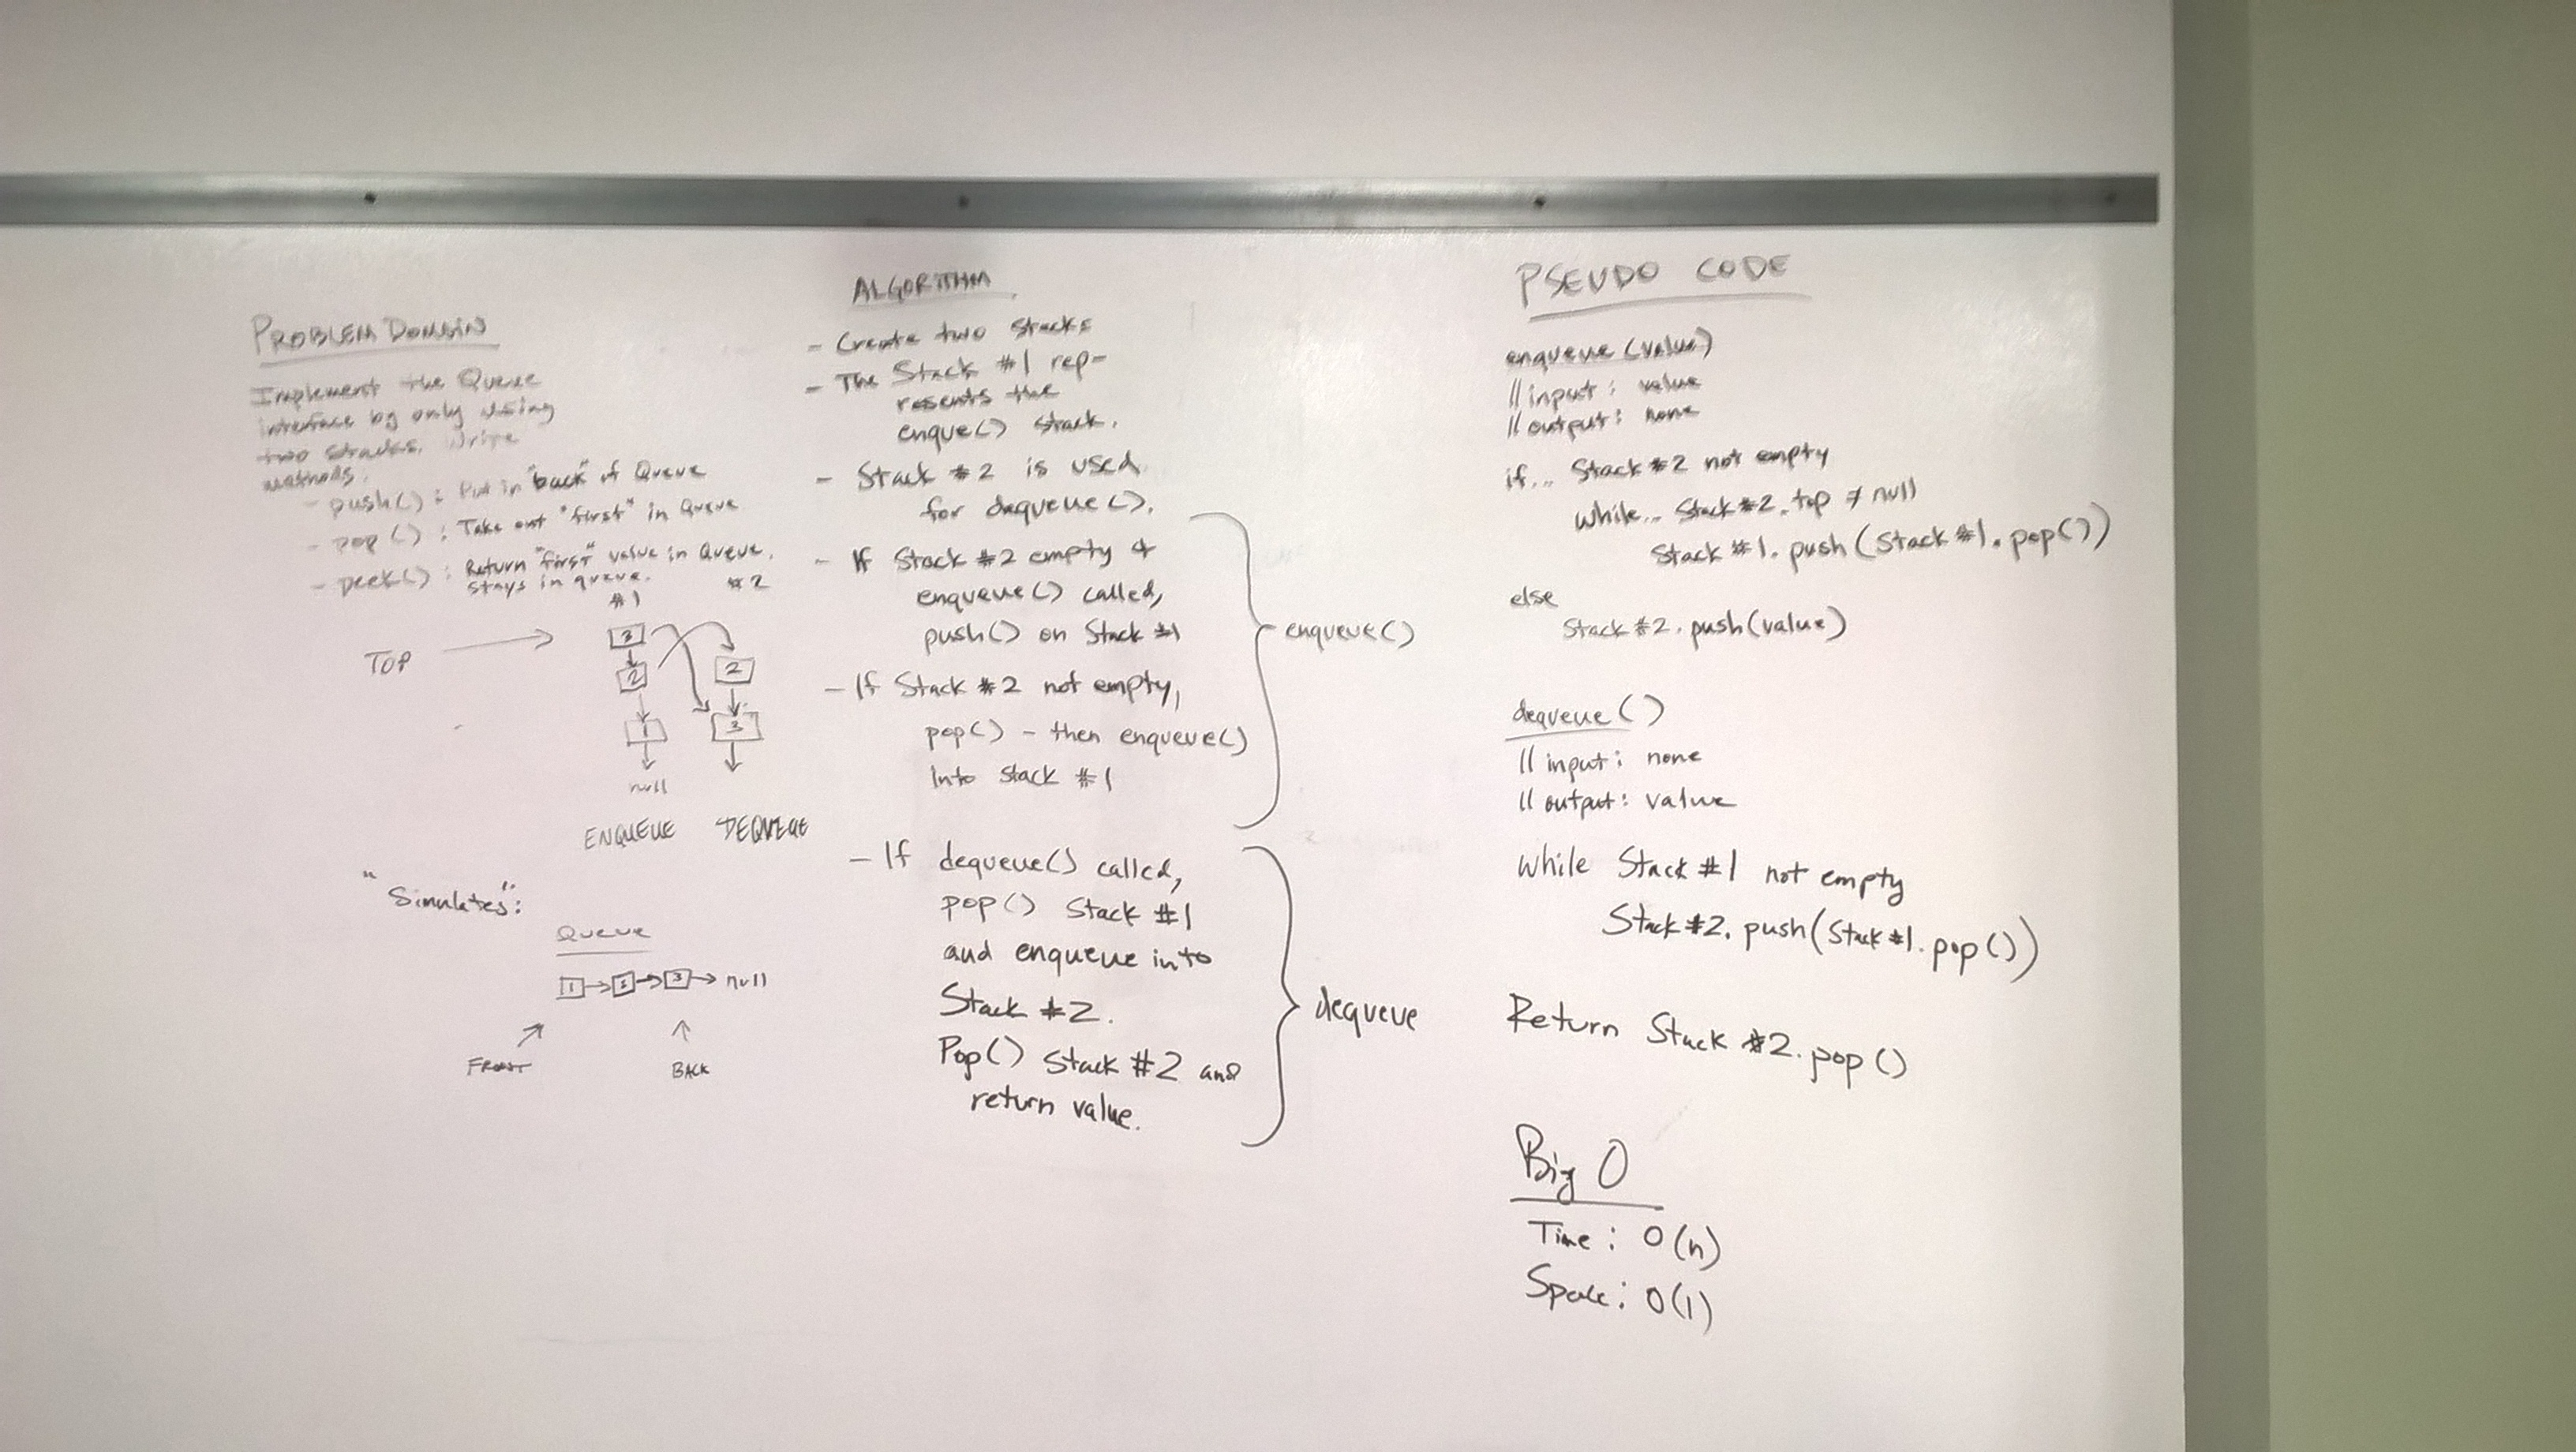 PROBLEM DOMAIN
Implement the Queue
interface by only using
two stacks. Write
methods.
- push() : Put in "back" of Queue
- pop() : Take out "first" in Queue
- peek() : Return "first" value in Queue.
stays in queue.
#1
#2
TOP
3
2
1
null
2
3
ENQUEUE
DEQUEUE
"Simulates":
Queue
1 → 2 → 3 → null
FRONT
BACK
ALGORITHM
- Create two Stacks
- The Stack #1 rep-
resents the
enque() stack.
- Stack #2 is used
for dequeue().
- If Stack #2 empty &
enqueue() called,
push() on Stack #1
- If Stack #2 not empty,
pop() - then enqueue()
into stack #1
enqueue()
- If dequeue() called,
pop() Stack #1
and enqueue into
Stack #2.
Pop() Stack #2 and
return value.
dequeue
PSEUDO CODE
enqueue (value)
// input : value
// output : none
if... Stack #2 not empty
while... Stack #2.top ≠ null
Stack #1.push(Stack #1.pop())
else
Stack #2.push(value)
dequeue()
// input : none
// output : value
while Stack #1 not empty
Stack #2.push(Stack #1.pop())
Return Stack #2.pop()
Big O
Time : O(n)
Space : O(1)